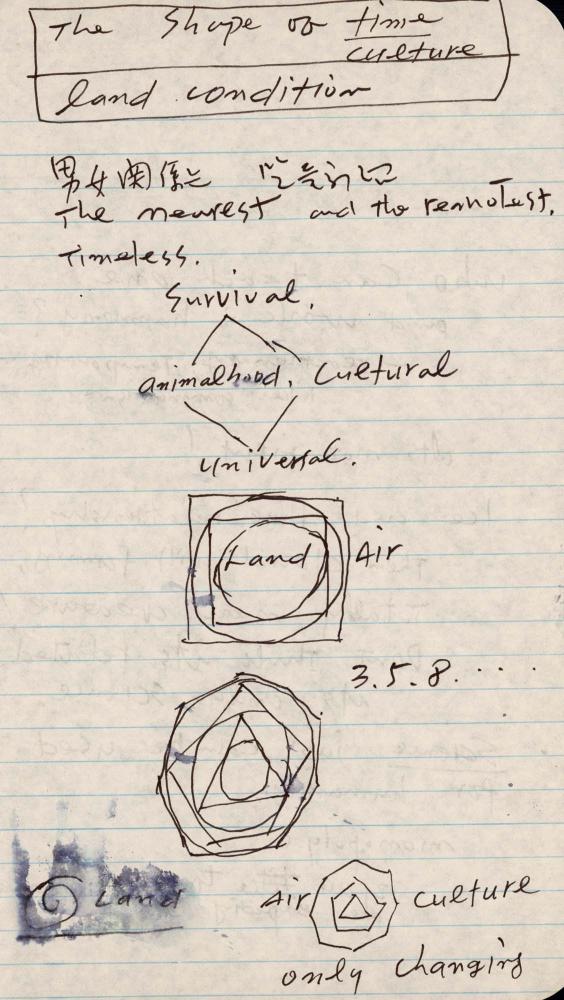 The Shape of time
culture
land condition
男女関係
The nearest and the remotest,
Timeless.
Survival.
animalhood. Cultural
Universal.
Land Air
3.5.8.....
Land Air culture
only changing